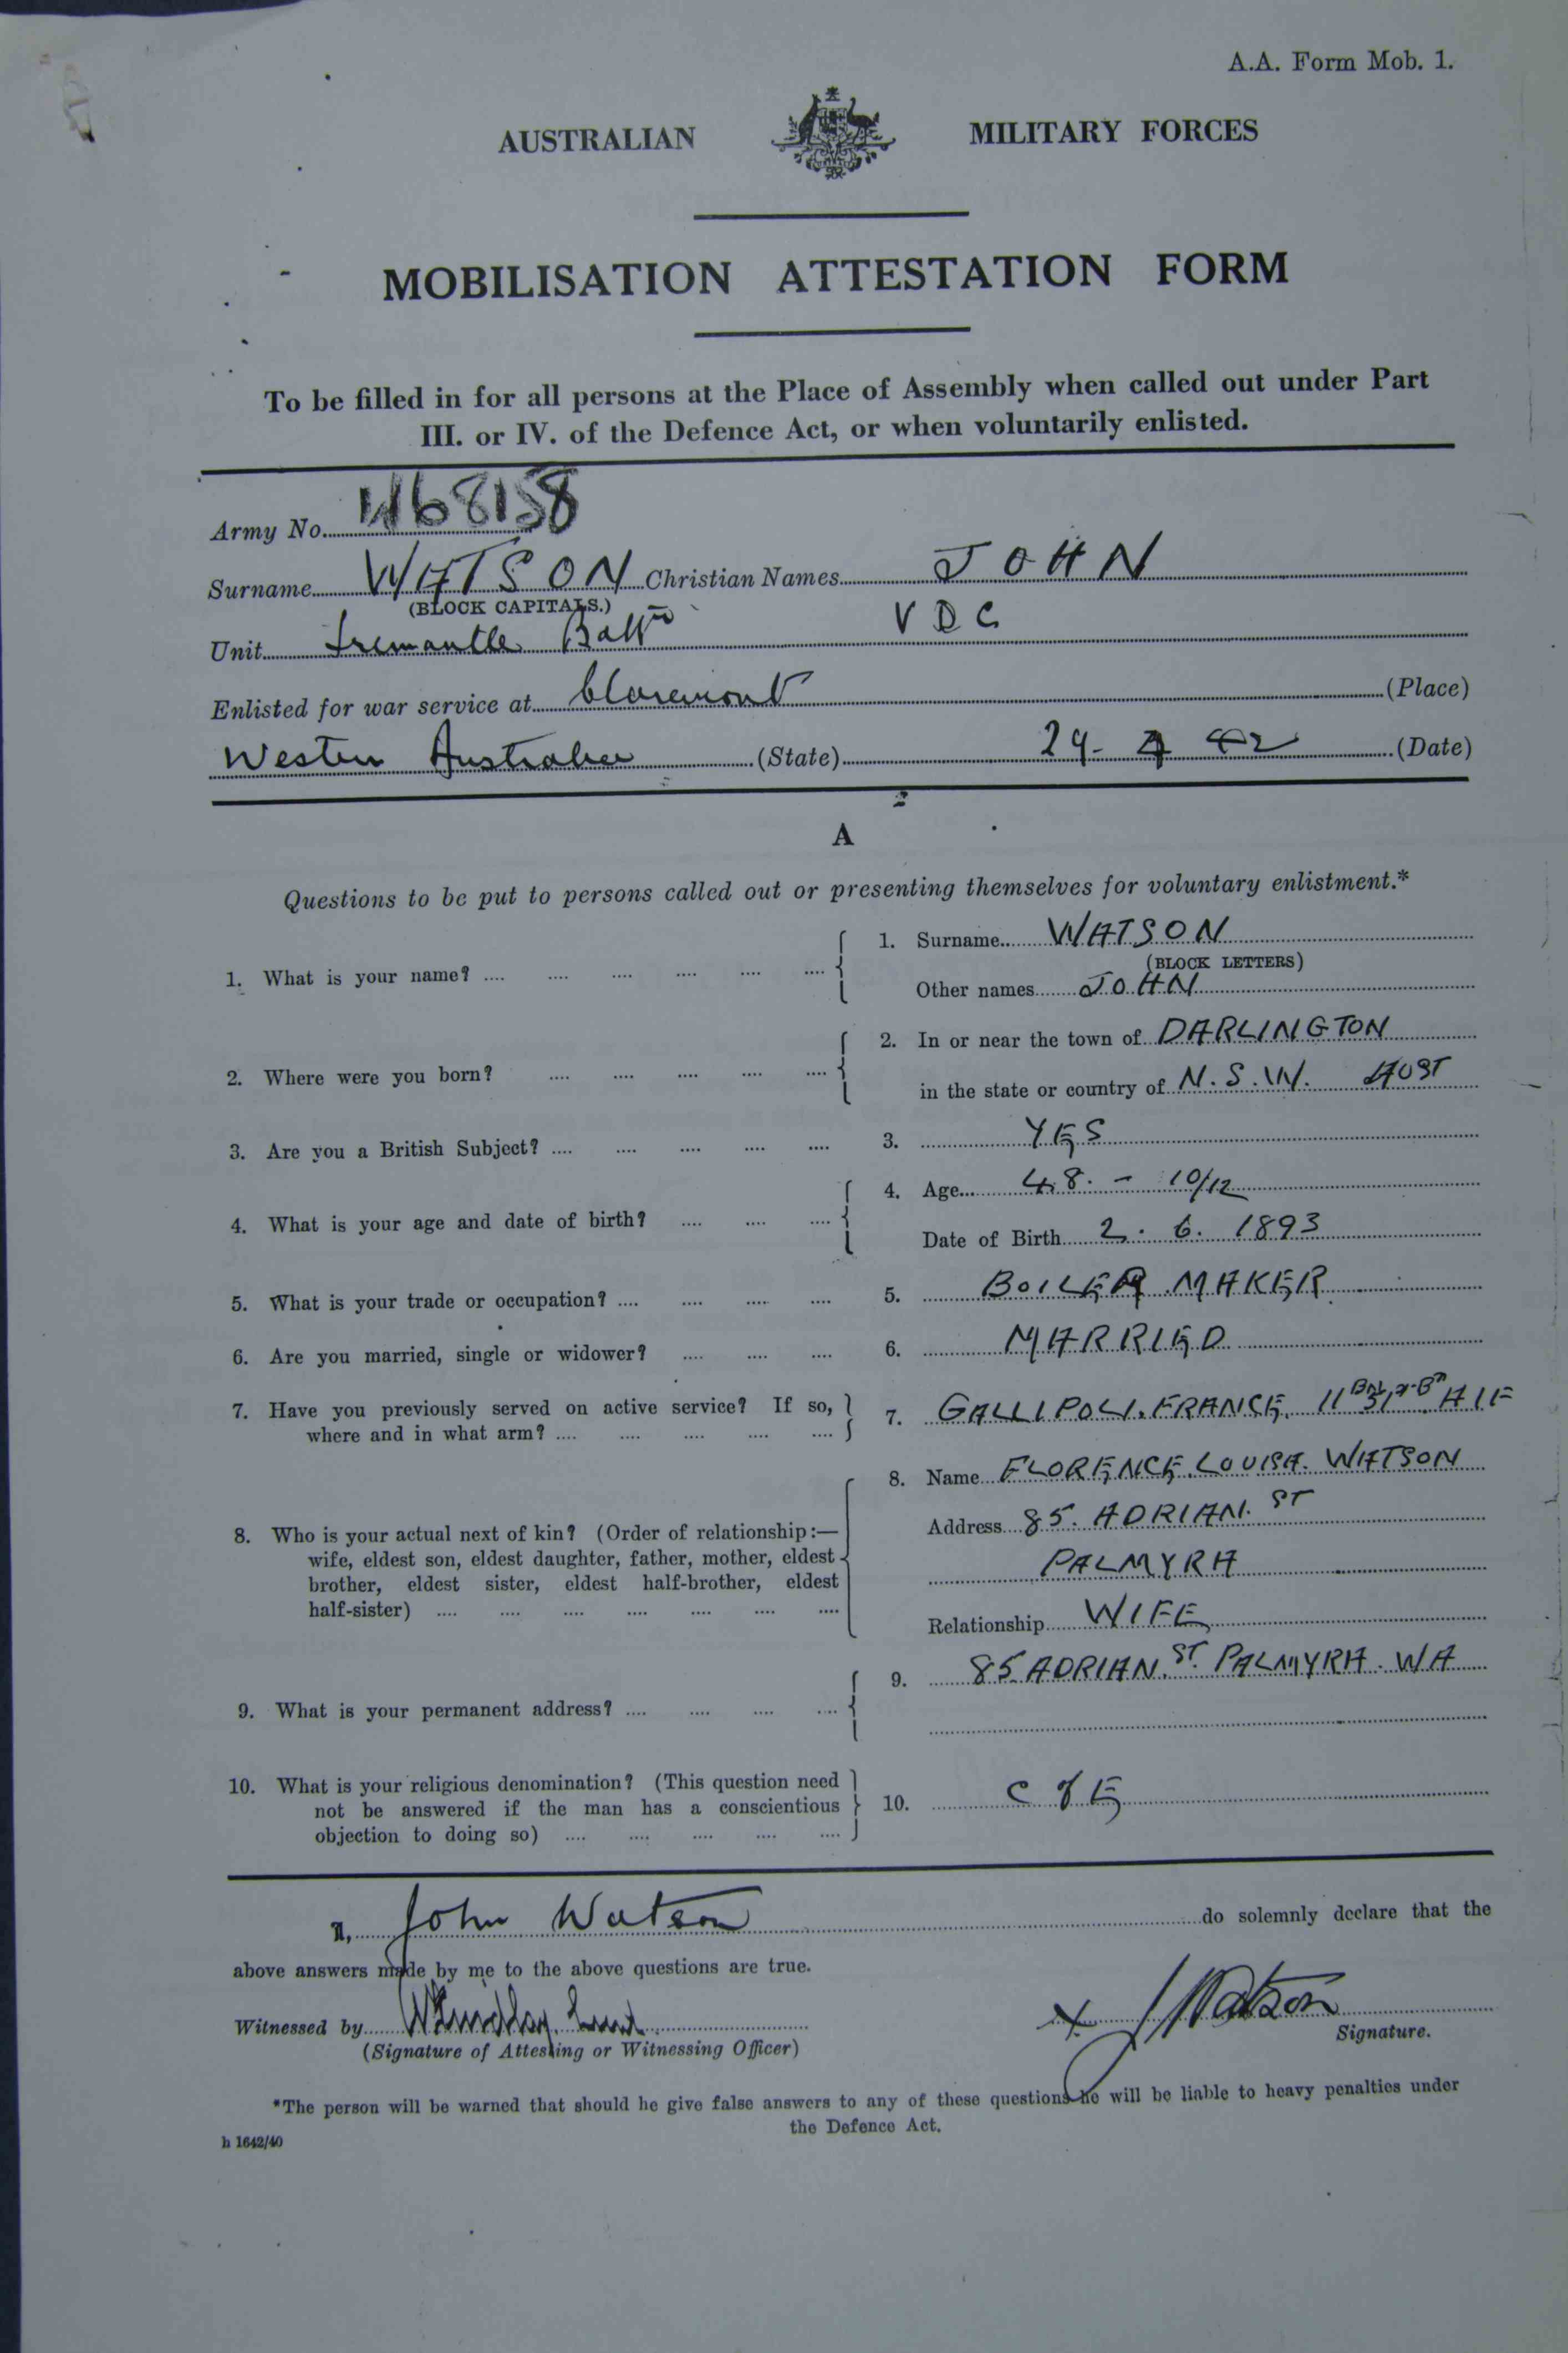 A.A. Form Mob. 1.
AUSTRALIAN MILITARY FORCES
MOBILISATION ATTESTATION FORM
To be filled in for all persons at the Place of Assembly when called out under Part
III. or IV. of the Defence Act, or when voluntarily enlisted.
Army No. W68158
Surname WATSON Christian Names JOHN
(BLOCK CAPITALS.)
Unit Fremantle Battn VDC
Enlisted for war service at Claremont (Place)
Western Australia (State) 29- 4 42 (Date)
A
Questions to be put to persons called out or presenting themselves for voluntary enlistment.*
1. Surname WATSON
(BLOCK LETTERS)
1. What is your name? .... .... .... .... .... ....
Other names JOHN
2. In or near the town of DARLINGTON
2. Where were you born? .... .... .... .... ....
in the state or country of N.S.W. AUST
3. Are you a British Subject? .... .... .... .... .... 3. YES
4. Age 48. - 10/12
4. What is your age and date of birth? .... .... ....
Date of Birth 2. 6. 1893
5. What is your trade or occupation? .... .... .... .... 5. BOILER MAKER
6. Are you married, single or widower? .... .... .... 6. MARRIED
7. Have you previously served on active service? If so, 7. GALLIPOLI. FRANCE. 11 BN 51st Bn AIF
where and in what arm? .... .... .... .... ....
8. Name FLORENCE. LOUISA. WATSON
Address 85. ADRIAN. ST
8. Who is your actual next of kin? (Order of relationship:—
wife, eldest son, eldest daughter, father, mother, eldest
PALMYRA
brother, eldest sister, eldest half-brother, eldest
half-sister) .... .... .... .... .... .... ....
Relationship WIFE
9. 85 ADRIAN. ST. PALMYRA. WA
9. What is your permanent address? .... .... .... ....
10. What is your religious denomination? (This question need
not be answered if the man has a conscientious 10. C of E
objection to doing so) .... .... .... .... ....
I, John Watson do solemnly declare that the
above answers made by me to the above questions are true.
Witnessed by x J Watson
Signature.
(Signature of Attesting or Witnessing Officer)
*The person will be warned that should he give false answers to any of these questions he will be liable to heavy penalties under
the Defence Act.
h 1642/40